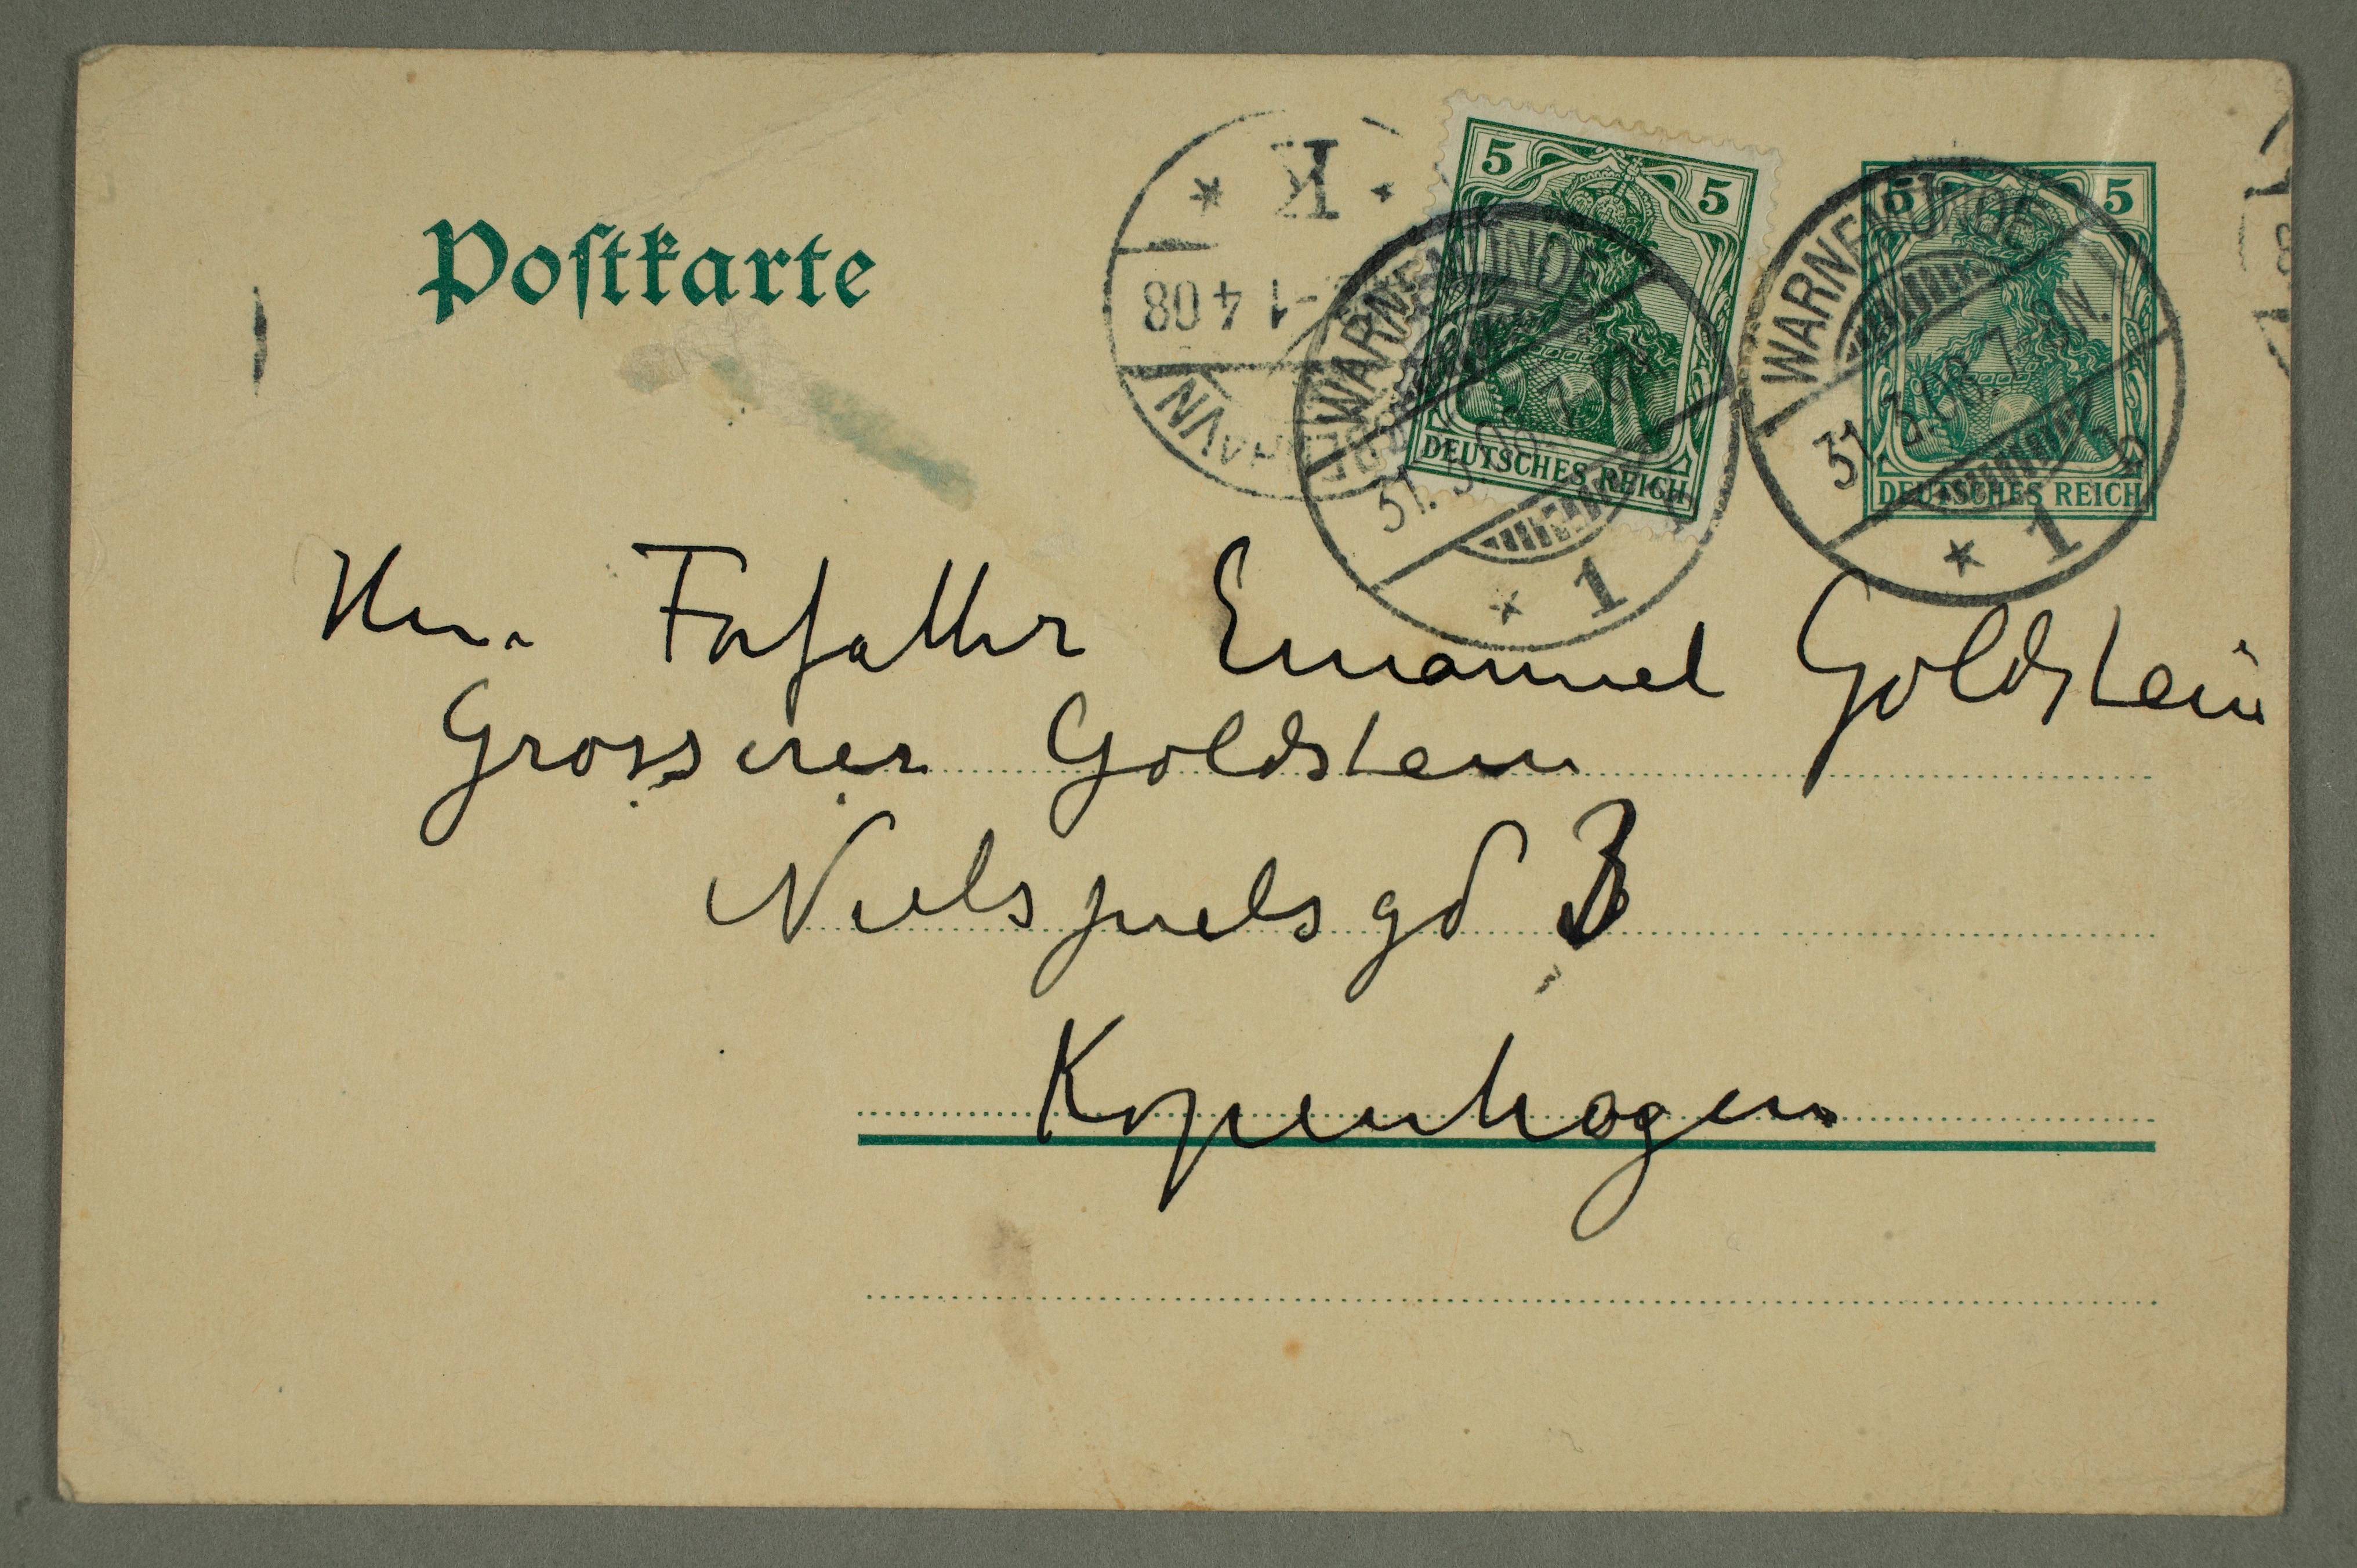 Postkarte
K
-1 4 08
5 5
DEUTSCHES REICH
WARNEMÜNDE
31.3.08.7-8N.
* 1
5 5
DEUTSCHES REICH
WARNEMÜNDE
31.3.08.7-8N.
* 1
Herr. Forfatter Emanuel Goldstein
Grosserer Goldstein
Niels juelsgd
Kopenhagen